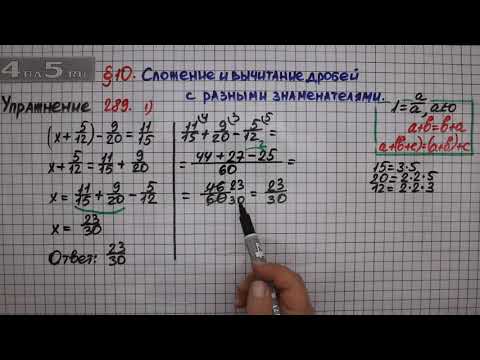 4 на 5.ru
§10. Сложение и вычитание дробей
с разными знаменателями.
Упражнение 289. 1)
(x + 5/12) - 9/20 = 11/15
x + 5/12 = 11/15 + 9/20
x = 11/15 + 9/20 - 5/12
x = 23/30
Ответ: 23/30
11/15 \4 + 9/20 \3 - 5/12 \5 =
= (44 + 27 - 25)/60 =
= 46/60 23/30 = 23/30
1 = a/a, a≠0
a+b=b+a
a+(b+c)=(a+b)+c
15=3·5
20=2·2·5
12=2·2·3